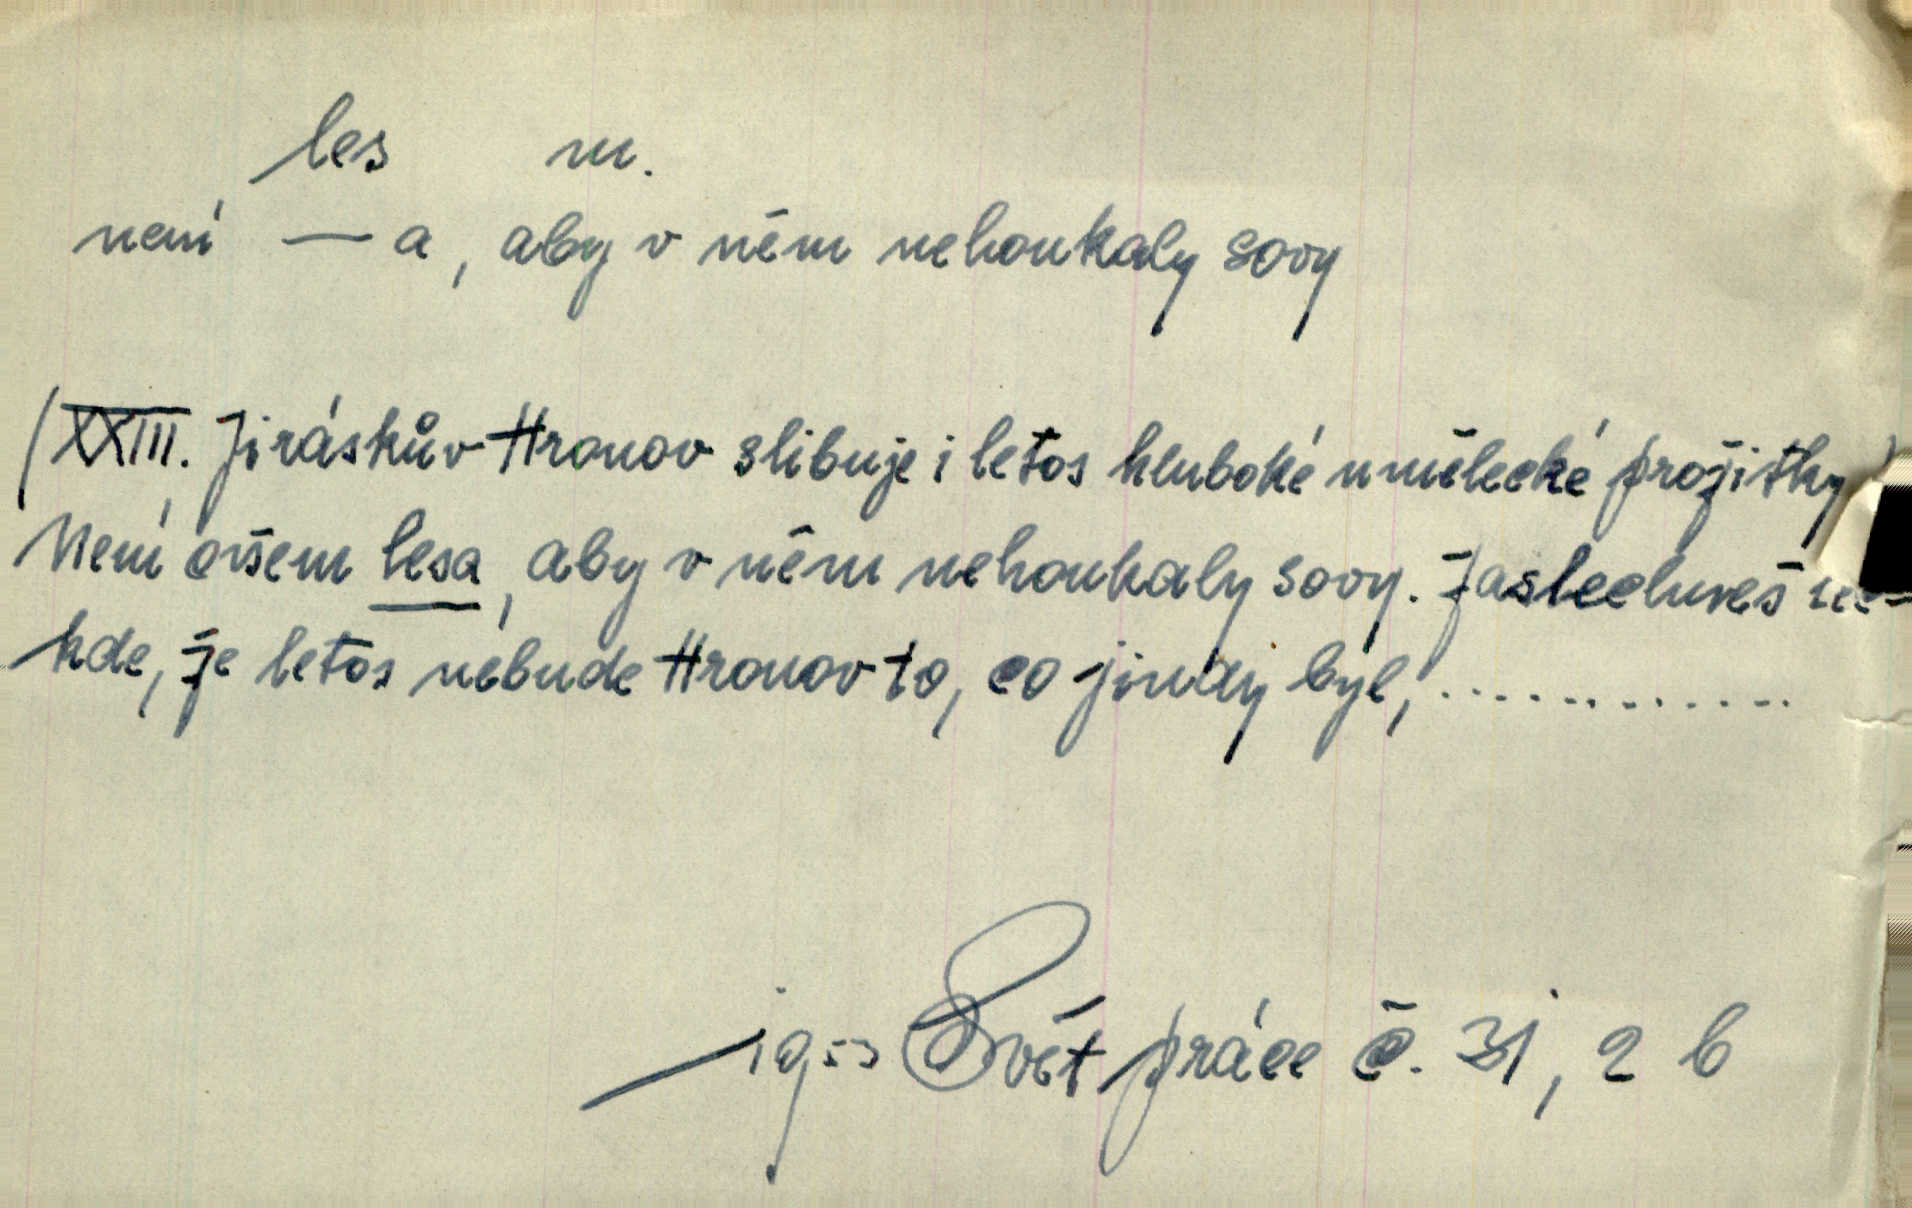 les m.
není — a, aby v něm nehoukaly sovy
(XXIII. Jiráskův Hronov slibuje i letos hluboké umělecké prožitky)
Není ovšem lesa, aby v něm nehoukaly sovy. Zaslechneš ně-
kde, že letos nebude Hronov to, co jindy byl, ............
1953 Svět práce č. 31, 2 b